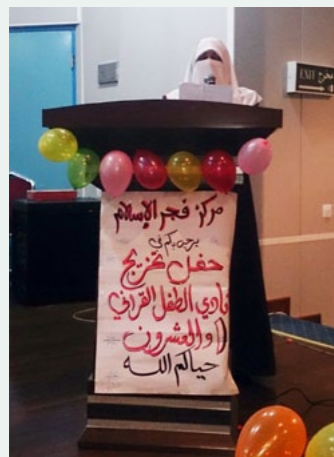 EXIT مخرج
مركز فجر الإسلام
يرحب بكم في
حفل تخريج
نادي الطفل القرآني
والعشرون
حياكم الله